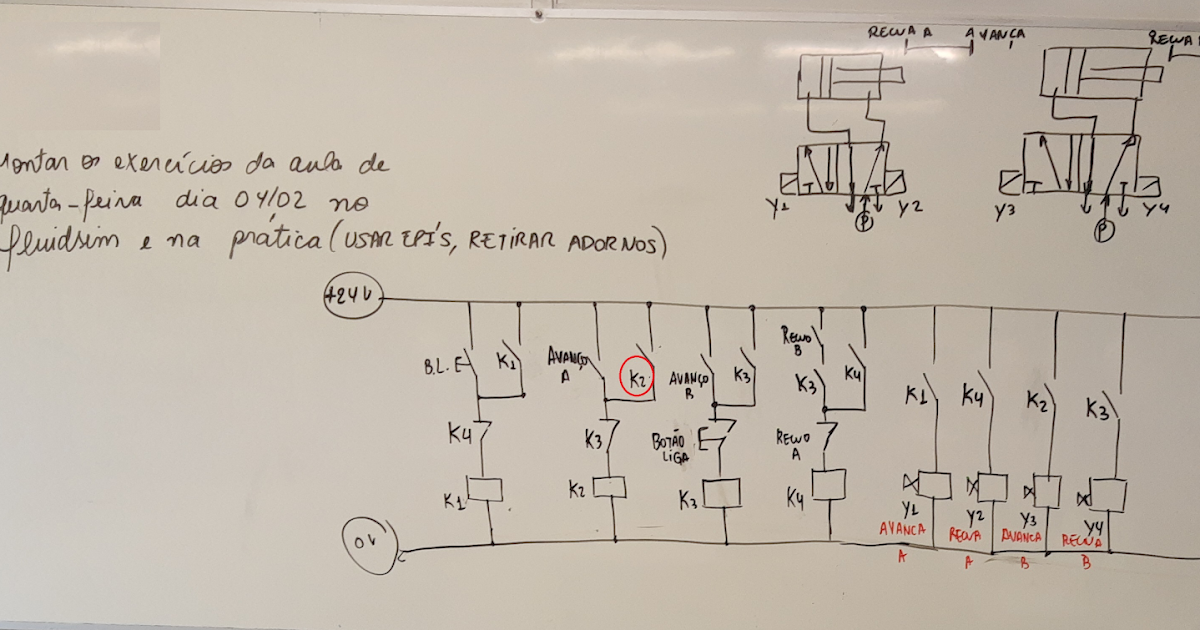 RECUA A AVANÇA
RECUA
Montar os exercícios da aula de
quarta-feira dia 04/02 no
fluidsim e na prática (USAR EPI'S, RETIRAR ADORNOS)
Y1 P Y2
Y3 P Y4
+24V
B.L. E K1
AVANÇO A K2
AVANÇO B K3
RECUO B
K3 K4
K1 K4 K2 K3
K4 K3 BOTÃO LIGA RECUO A
K1 K2 K3 K4
Y1 Y2 Y3 Y4
AVANCA A RECUA A AVANCA B RECUA B
0V